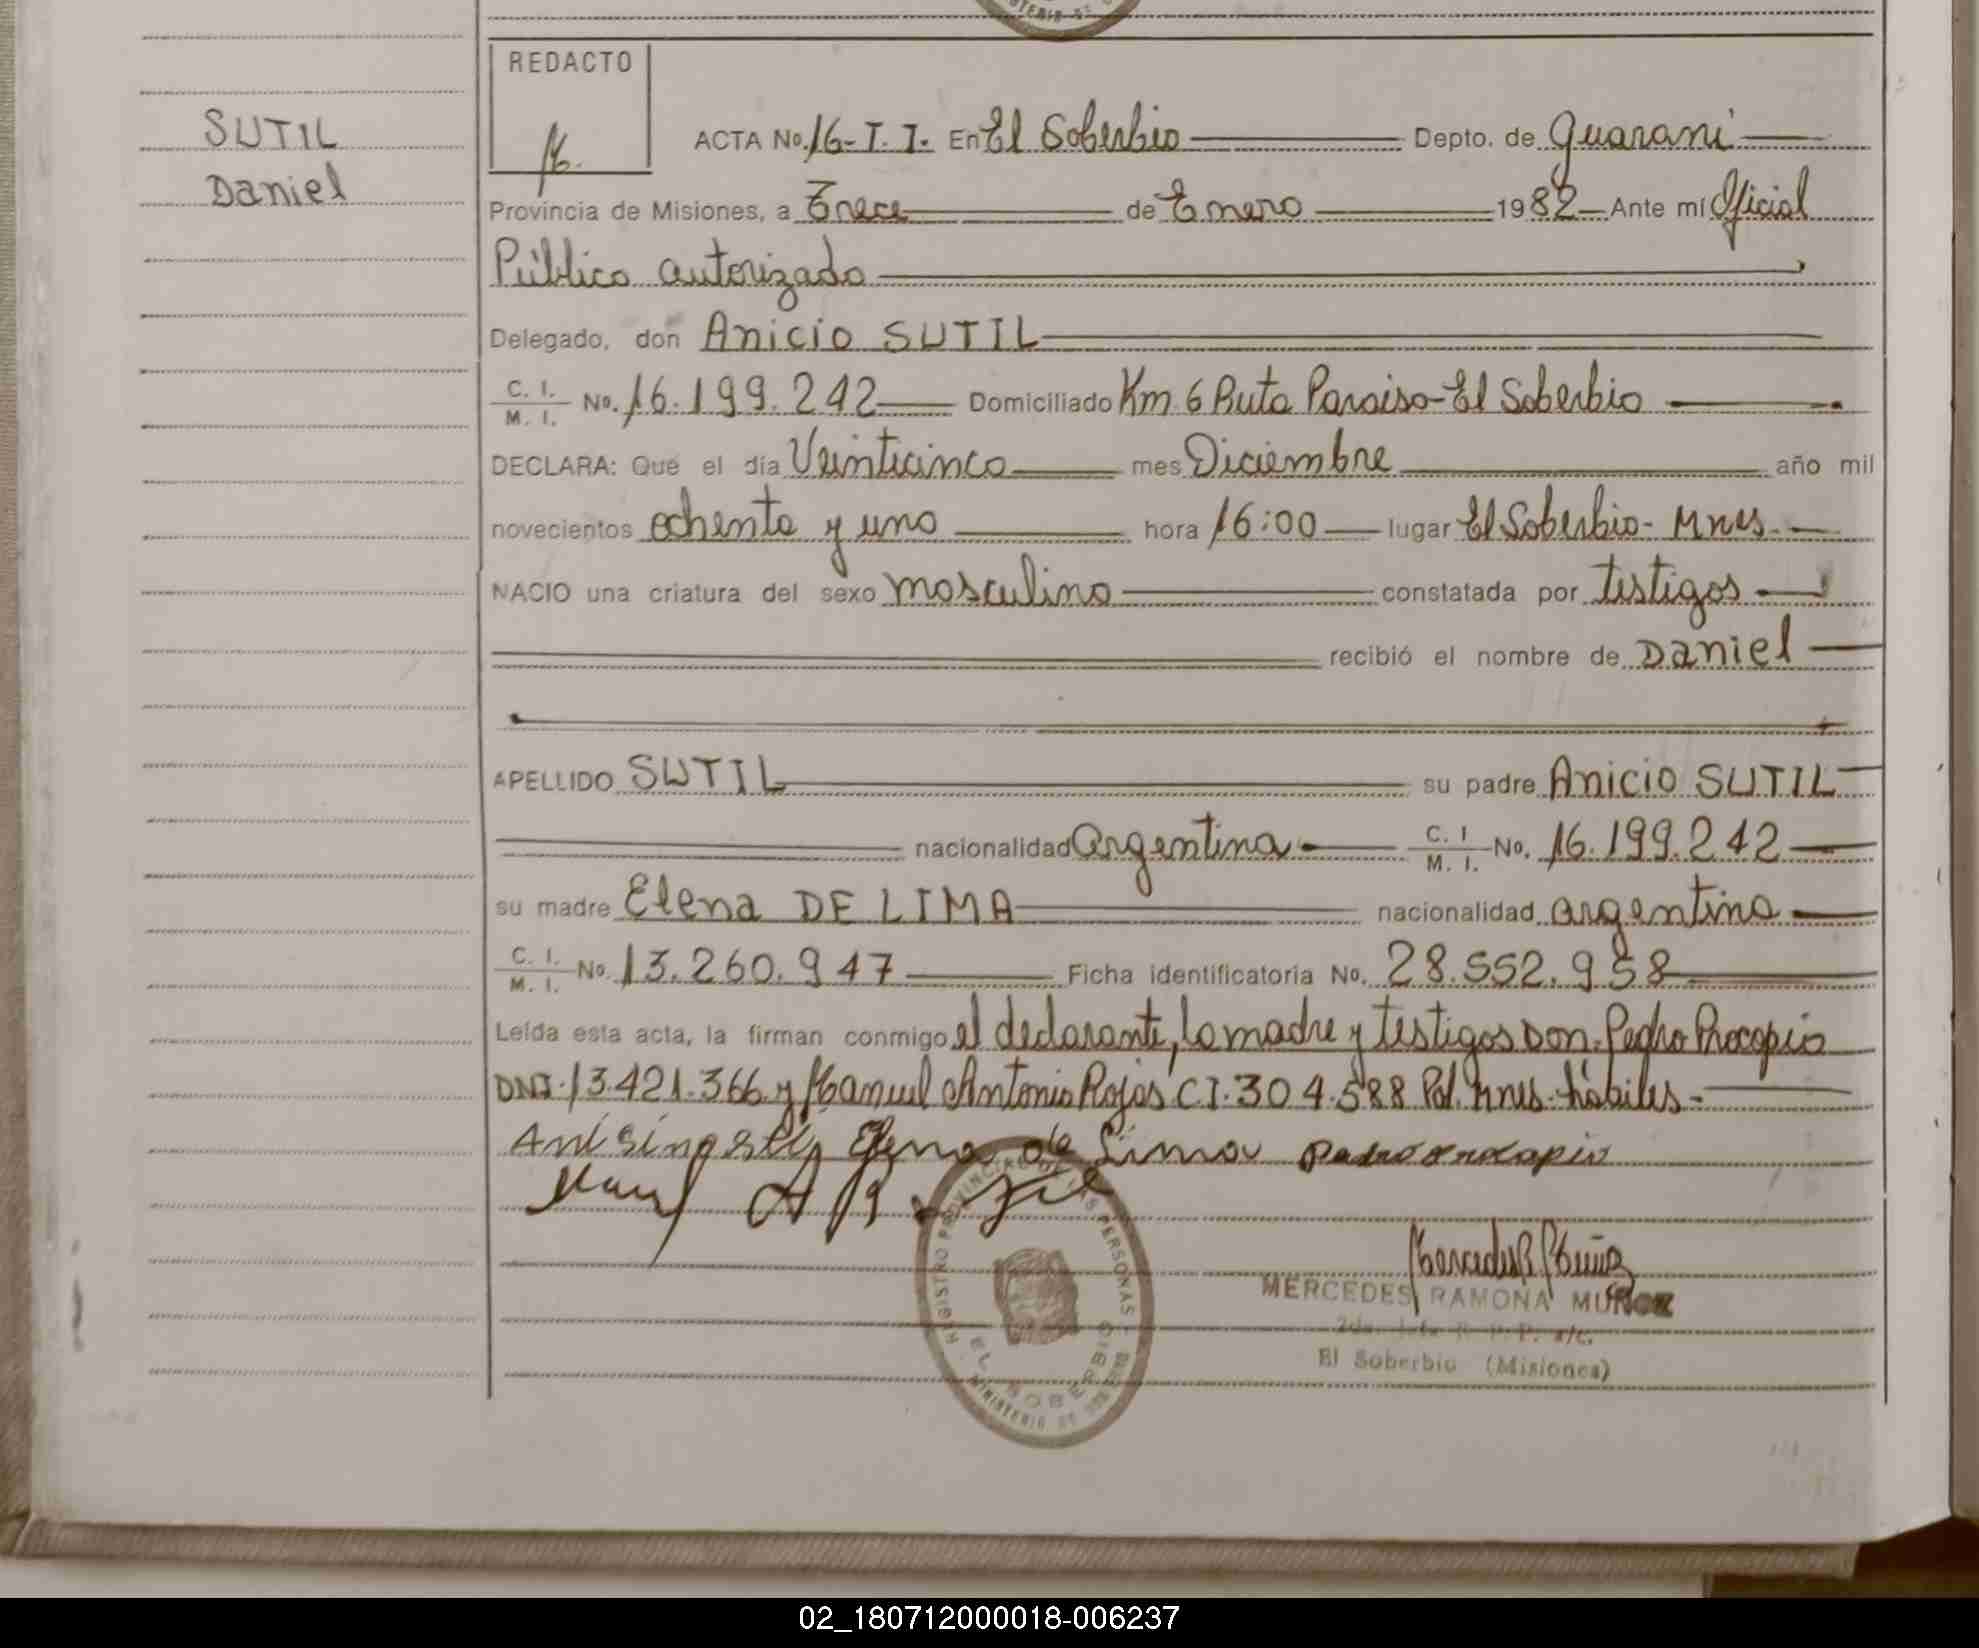 REDACTO
SUTIL
Daniel
ACTA No. 16-T.I. En El Soberbio Depto. de Guaraní
Provincia de Misiones, a Trece de Enero 1982 Ante mí Oficial
Público autorizado
Delegado, don Anicio SUTIL
C. I. / M. I. No. 16.199.242 Domiciliado Km 6 Ruta Paraiso-El Soberbio
DECLARA: Que el día Veinticinco mes Diciembre año mil
novecientos ochenta y uno hora 16:00 lugar El Soberbio- Mnes.
NACIO una criatura del sexo masculino constatada por testigos
recibió el nombre de Daniel
APELLIDO SUTIL su padre Anicio SUTIL
nacionalidad Argentina C. I. / M. I. No. 16.199.242
su madre Elena DE LIMA nacionalidad argentina
C. I. / M. I. No. 13.260.947 Ficha identificatoria No. 28.552.958
Leída esta acta, la firman conmigo el declarante, la madre y testigos Don. Pedro Procopio
DNI. 13.421.366 y Manuel Antonio Rojas C.I. 304.588 Pol. Mnes. hábiles.
Elena de Lima
REGISTRO PROVINCIAL DE LAS PERSONAS
EL SOBERBIO
MINISTERIO DE GOBIERNO
Mercedes R. Muñoz
MERCEDES RAMONA MUÑOZ
El Soberbio (Misiones)
02_180712000018-006237